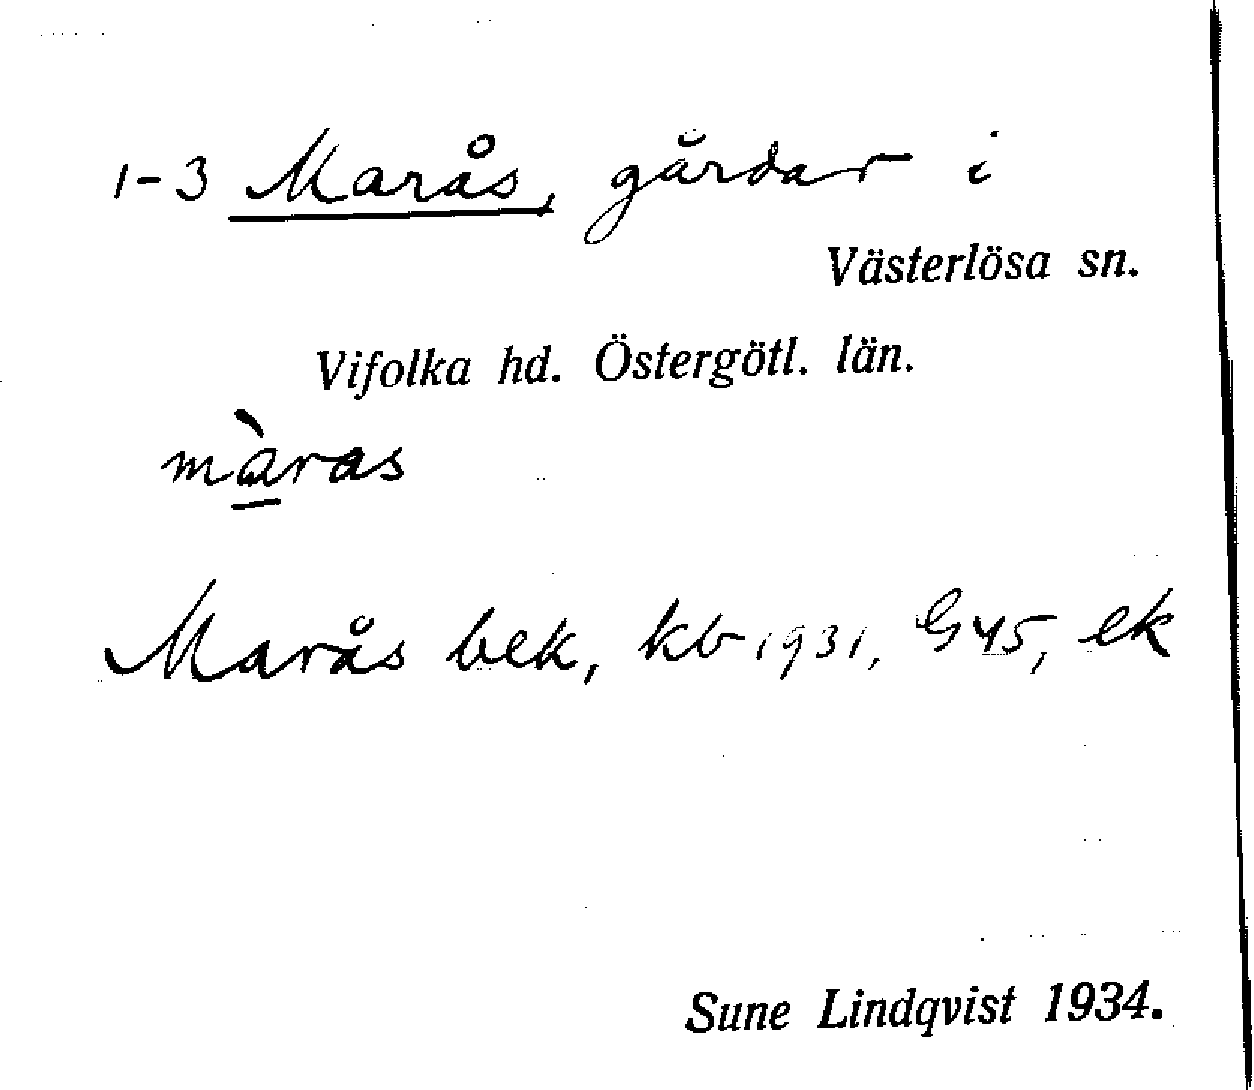 1-3 Marås, gårdar i
Västerlösa sn.
Vifolka hd. Östergötl. län.
màras
Marås bek, kb 1931, G45, ek
Sune Lindqvist 1934.